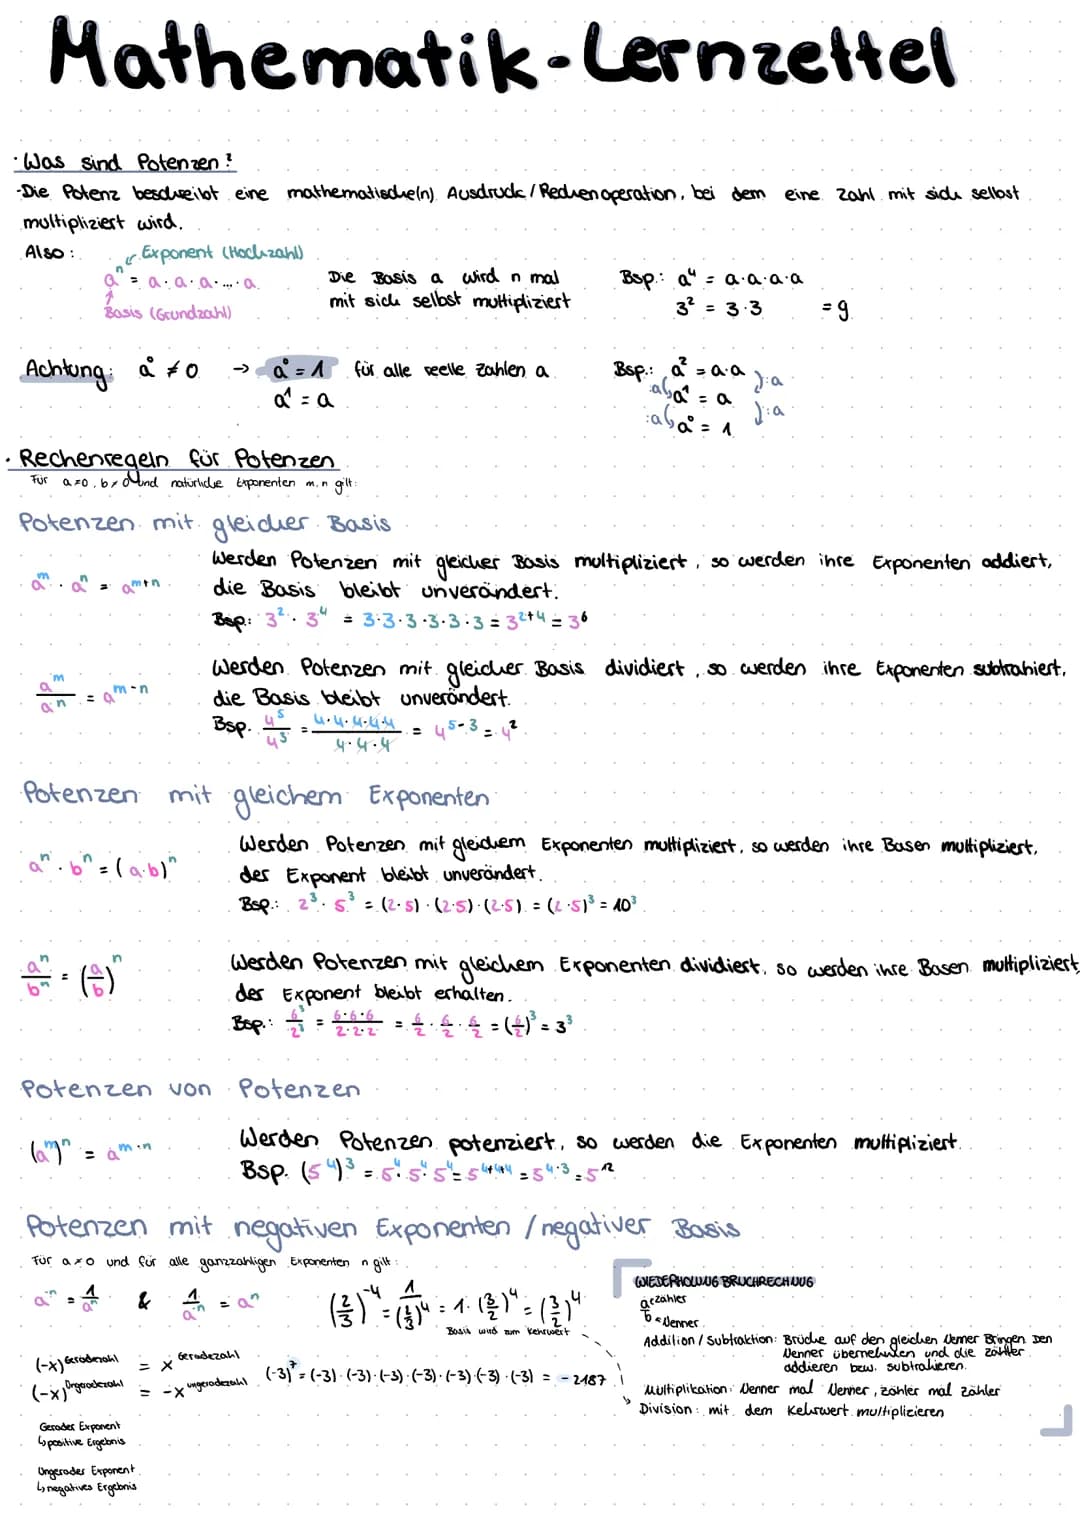 Mathematik-Lernzettel
· Was sind Potenzen?
-Die Potenz beschreibt eine mathematische(n) Ausdruck / Rechenoperation, bei dem eine Zahl mit sich selbst
multipliziert wird.
Also: Exponent (Hochzahl)
aⁿ = a·a·a·...·a
Basis (Grundzahl)
Die Basis a wird n mal
mit sich selbst multipliziert
Bsp.: a⁴ = a·a·a·a
3² = 3·3 = 9
Achtung: a⁰ ≠ 0 → a⁰ = 1 für alle reelle Zahlen a
a¹ = a
Bsp.: a² = a·a
:a a¹ = a :a
:a a⁰ = 1 :a
· Rechenregeln für Potenzen
Für a≠0, b≠0 und natürliche Exponenten m, n gilt:
Potenzen mit gleicher Basis
aᵐ · aⁿ = aᵐ⁺ⁿ
Werden Potenzen mit gleicher Basis multipliziert, so werden ihre Exponenten addiert,
die Basis bleibt unverändert.
Bsp.: 3² · 3⁴ = 3·3·3·3·3·3 = 3²⁺⁴ = 3⁶
aᵐ/aⁿ = aᵐ⁻ⁿ
Werden Potenzen mit gleicher Basis dividiert, so werden ihre Exponenten subtrahiert,
die Basis bleibt unverändert.
Bsp. 4⁵/4³ = 4·4·4·4·4/4·4·4 = 4⁵⁻³ = 4²
Potenzen mit gleichem Exponenten
aⁿ · bⁿ = (a·b)ⁿ
Werden Potenzen mit gleichem Exponenten multipliziert, so werden ihre Basen multipliziert,
der Exponent bleibt unverändert.
Bsp.: 2³ · 5³ = (2·5)·(2·5)·(2·5) = (2·5)³ = 10³
aⁿ/bⁿ = (a/b)ⁿ
Werden Potenzen mit gleichem Exponenten dividiert, so werden ihre Basen multipliziert,
der Exponent bleibt erhalten.
Bsp.: 6³/2³ = 6·6·6/2·2·2 = 6/2 · 6/2 · 6/2 = (6/2)³ = 3³
Potenzen von Potenzen
(aᵐ)ⁿ = aᵐ·ⁿ
Werden Potenzen potenziert, so werden die Exponenten multipliziert.
Bsp. (5⁴)³ = 5⁴·5⁴·5⁴ = 5⁴⁺⁴⁺⁴ = 5⁴·³ = 5¹²
Potenzen mit negativen Exponenten / negativer Basis
Für a≠0 und für alle ganzzahligen Exponenten n gilt:
a⁻ⁿ = 1/aⁿ & 1/a⁻ⁿ = aⁿ
(2/3)⁻⁴ = 1/(2/3)⁴ = 1·(3/2)⁴ = (3/2)⁴
Basis wird zum Kehrwert
(-x)ᴳᵉʳᵃᵈᵉᶻᵃʰˡ = x Geradezahl
(-x) Ungeradezahl = -x ungeradezahl
(-3)⁷ = (-3)·(-3)·(-3)·(-3)·(-3)·(-3)·(-3) = -2187
Gerader Exponent
↳ positive Ergebnis
Ungerader Exponent
↳ negatives Ergebnis
WIEDERHOLUNG BRUCHRECHNUNG
a Zähler
b Nenner
Addition / Subtraktion: Brüche auf den gleichen Nenner Bringen. Den
Nenner übernehmen und die Zähler
addieren bzw. subtrahieren.
Multiplikation: Nenner mal Nenner, Zähler mal Zähler
Division: mit dem Kehrwert multiplizieren